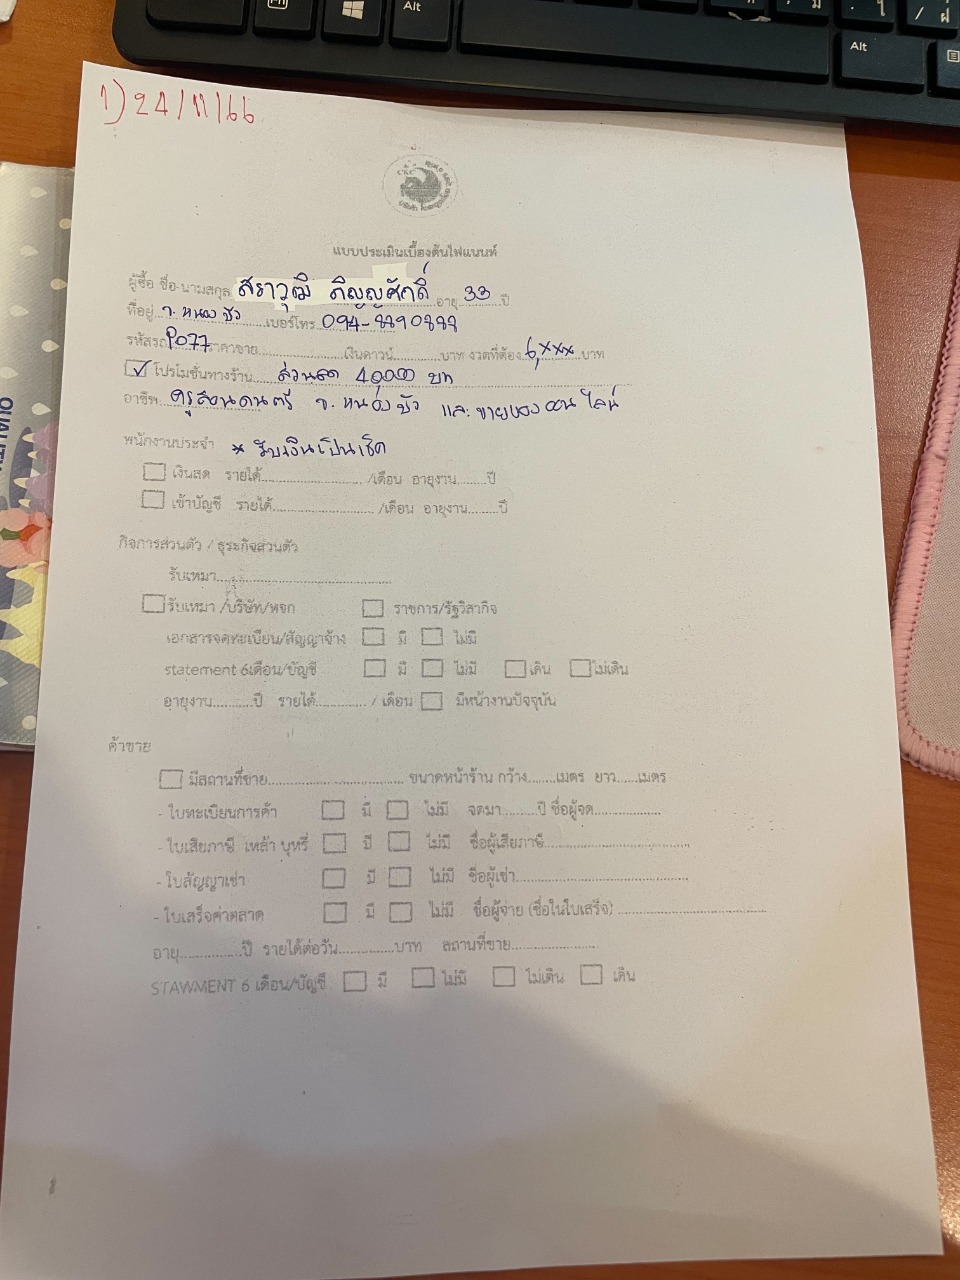 1) 24/11/66
CKC
แบบประเมินเบื้องต้นไฟแนนท์
ผู้ซื้อ ชื่อ-นามสกุล สราวุฒิ ภิญญศักดิ์ อายุ 33 ปี
ที่อยู่ จ. หนองบัว เบอร์โทร 094-8890888
รหัสรถ P077 ราคาขาย เงินดาวน์ บาท งวดที่ต้อง 6,xxx บาท
โปรโมชันทางร้าน ส่วนลด 40,000 บาท
อาชีพ ครูสอนดนตรี จ. หนองบัว และ ขายของออนไลน์
พนักงานประจำ * รับเงินเป็นเช็ค
เงินสด รายได้ /เดือน อายุงาน ปี
เข้าบัญชี รายได้ /เดือน อายุงาน ปี
กิจการส่วนตัว / ธุระกิจส่วนตัว
รับเหมา
รับเหมา /บริษัท/หจก ราชการ/รัฐวิสากิจ
เอกสารจดทะเบียน/สัญญาจ้าง มี ไม่มี
statement 6เดือน/บัญชี มี ไม่มี เดิน ไม่เดิน
อายุงาน ปี รายได้ / เดือน มีหน้างานปัจจุบัน
ค้าขาย
มีสถานที่ขาย ขนาดหน้าร้าน กว้าง เมตร ยาว เมตร
- ใบทะเบียนการค้า มี ไม่มี จดมา ปี ชื่อผู้จด
- ใบเสียภาษี เหล้า บุหรี่ มี ไม่มี ชื่อผู้เสียภาษี
- ใบสัญญาเช่า มี ไม่มี ชื่อผู้เช่า
- ใบเสร็จค่าตลาด มี ไม่มี ชื่อผู้จ่าย (ชื่อในใบเสร็จ)
อายุ ปี รายได้ต่อวัน บาท สถานที่ขาย
STAWMENT 6 เดือน/บัญชี มี ไม่มี ไม่เดิน เดิน
Alt
Alt